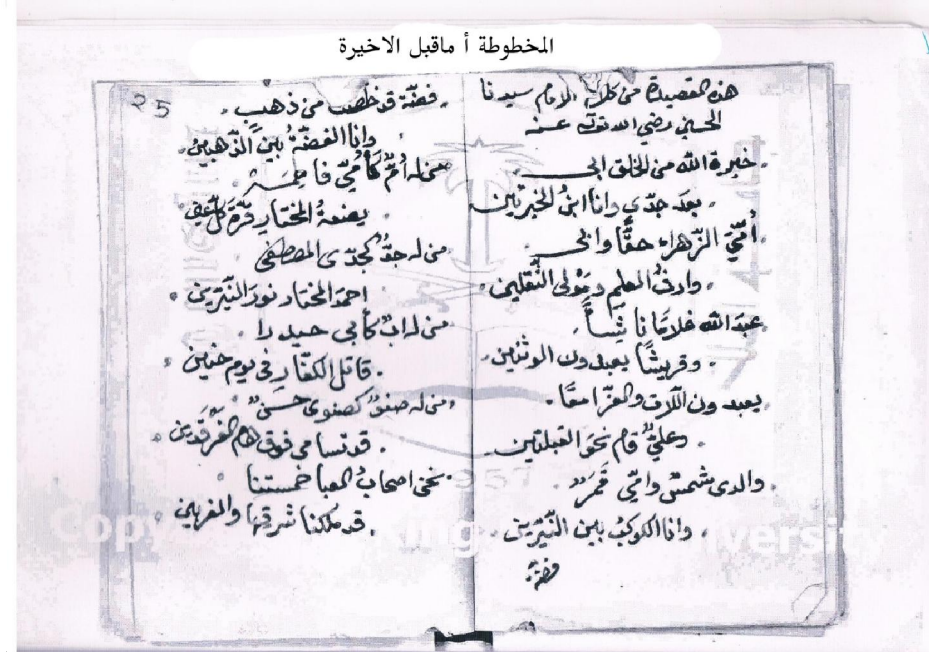 المخطوطة أ ماقبل الاخيرة
هذه القصيدة من كلام الامام سيدنا
الحسين رضي الله عنه
خيرة الله من الخلق ابي
بعد جدّي وانا ابنُ الخيرتين
أُمّيَ الزّهراء حقًّا وابي
وارثُ العلم ومَوْلى الثقلين
عبدَ الله غلامًا ناشِئًا
وقريشًا يعبدون الوثنين
يعبدون اللّات والعزّا معًا
وعليٌّ قام نحوَ القبلتين
والدى شمسٌ وامّي قمرٌ
وانا الكوكبُ بين النّيّرين
فضة
25
فضّة قد خلصت من ذهبٍ
وانا الفضّةُ بين الذّهبين
من له أُمٌّ كأُمّي فاطمة
بضعةُ المختار قرّة كل عين
من له جدٌّ كجدّى المصطفى
احمدَ المختار نورَ النيّرين
من له ابٌ كأبي حيدرا
قاتل الكفّار في يوم حنين
من له صنوٌ كصنوى حسنٌ
قد تسامى فوق هام الفرقدين
نحن اصحابُ العبا خمستنا
قد ملكنا شرقها والمغربين
Copy King University
1957